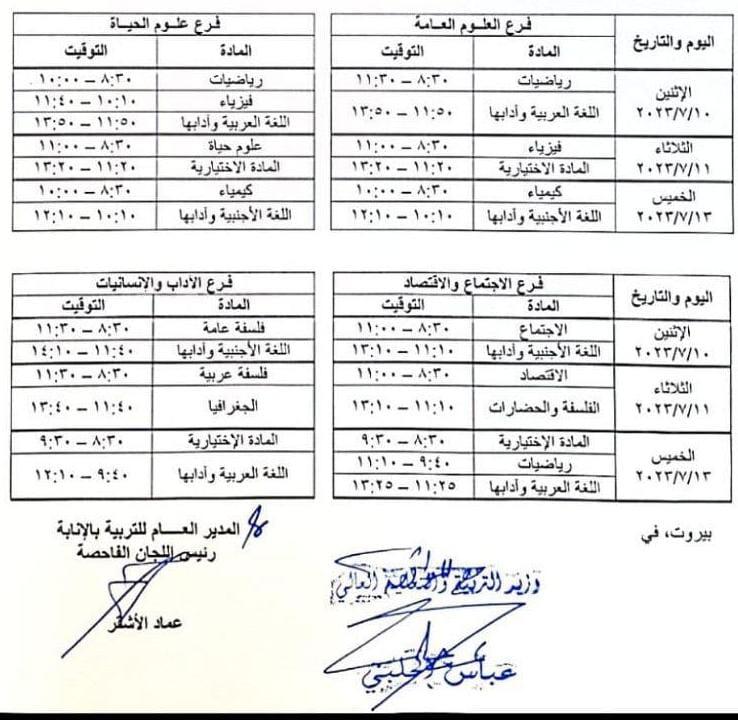 اليوم والتاريخ فرع العلوم العامة فرع علوم الحياة
المادة التوقيت المادة التوقيت
الإثنين ٢٠٢٣/٧/١٠
رياضيات ٨:٣٠ – ١١:٣٠ رياضيات ٨:٣٠ – ١٠:٠٠
فيزياء ١٠:١٠ – ١١:٤٠
اللغة العربية وأدابها ١١:٥٠ – ١٣:٥٠ اللغة العربية وأدابها ١١:٥٠ – ١٣:٥٠
الثلاثاء ٢٠٢٣/٧/١١
فيزياء ٨:٣٠ – ١١:٠٠ علوم حياة ٨:٣٠ – ١١:٠٠
المادة الاختيارية ١١:٢٠ – ١٣:٢٠ المادة الاختيارية ١١:٢٠ – ١٣:٢٠
الخميس ٢٠٢٣/٧/١٣
كيمياء ٨:٣٠ – ١٠:٠٠ كيمياء ٨:٣٠ – ١٠:٠٠
اللغة الأجنبية وأدابها ١٠:١٠ – ١٢:١٠ اللغة الأجنبية وأدابها ١٠:١٠ – ١٢:١٠
اليوم والتاريخ فرع الاجتماع والاقتصاد فرع الآداب والإنسانيات
المادة التوقيت المادة التوقيت
الإثنين ٢٠٢٣/٧/١٠
الاجتماع ٨:٣٠ – ١١:٠٠ فلسفة عامة ٨:٣٠ – ١١:٣٠
اللغة الأجنبية وأدابها ١١:١٠ – ١٣:١٠ اللغة الأجنبية وأدابها ١١:٤٠ – ١٤:١٠
الثلاثاء ٢٠٢٣/٧/١١
الاقتصاد ٨:٣٠ – ١١:٠٠ فلسفة عربية ٨:٣٠ – ١١:٣٠
الفلسفة والحضارات ١١:١٠ – ١٣:١٠ الجغرافيا ١١:٤٠ – ١٣:٤٠
الخميس ٢٠٢٣/٧/١٣
المادة الإختيارية ٨:٣٠ – ٩:٣٠ المادة الإختيارية ٨:٣٠ – ٩:٣٠
رياضيات ٩:٤٠ – ١١:١٠ اللغة العربية وأدابها ٩:٤٠ – ١٢:١٠
اللغة العربية وأدابها ١١:٢٥ – ١٣:٢٥
بيروت، في
المدير العـــام للتربية بالإنابة
رئيس اللجان الفاحصة
عماد الأشقر
وزير التربية والتعليم العالي
عباس الحلبي